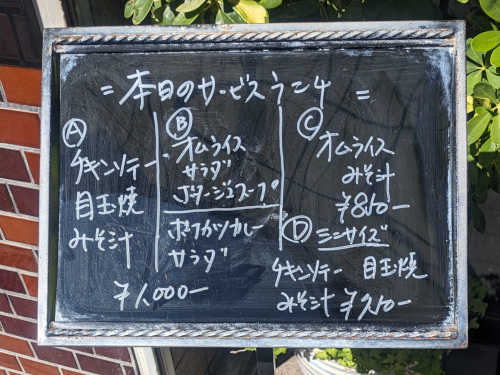 =本日のサービスランチ=
Ⓐ
チキンソテー
目玉焼
みそ汁
Ⓑ
オムライス
サラダ
ポタージュスープ
ポークカツカレー
サラダ
¥1,000-
Ⓒ
オムライス
みそ汁
¥850-
Ⓓ ミニサイズ
チキンソテー 目玉焼
みそ汁 ¥750-